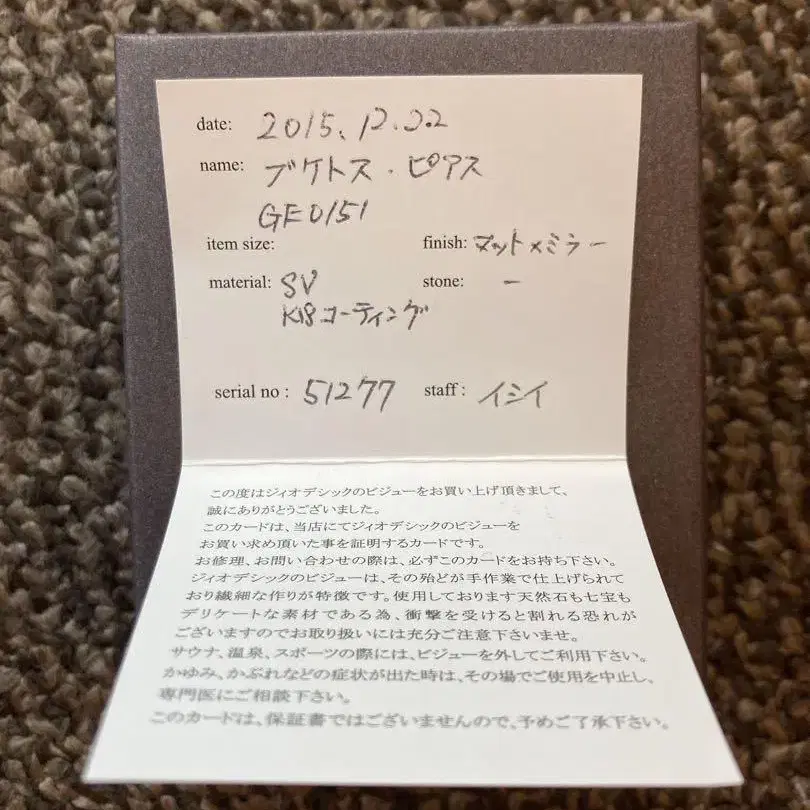 date: 2015.12.22
name: ブケトス・ピアス
GE0151
item size: finish: マット×ミラー
material: SV stone: ー
K18コーティング
serial no : 51277 staff : イシイ
この度はジィオデシックのビジューをお買い上げ頂きまして、
誠にありがとうございました。
このカードは、当店にてジィオデシックのビジューを
お買い求め頂いた事を証明するカードです。
お修理、お問い合わせの際は、必ずこのカードをお持ち下さい。
ジィオデシックのビジューは、その殆どが手作業で仕上げられて
おり繊細な作りが特徴です。使用しております天然石も七宝も
デリケートな素材である為、衝撃を受けると割れる恐れが
ございますのでお取り扱いには充分ご注意下さいませ。
サウナ、温泉、スポーツの際には、ビジューを外してご利用下さい。
かゆみ、かぶれなどの症状が出た時は、その場でご使用を中止し、
専門医にご相談下さい。
このカードは、保証書ではございませんので、予めご了承下さい。